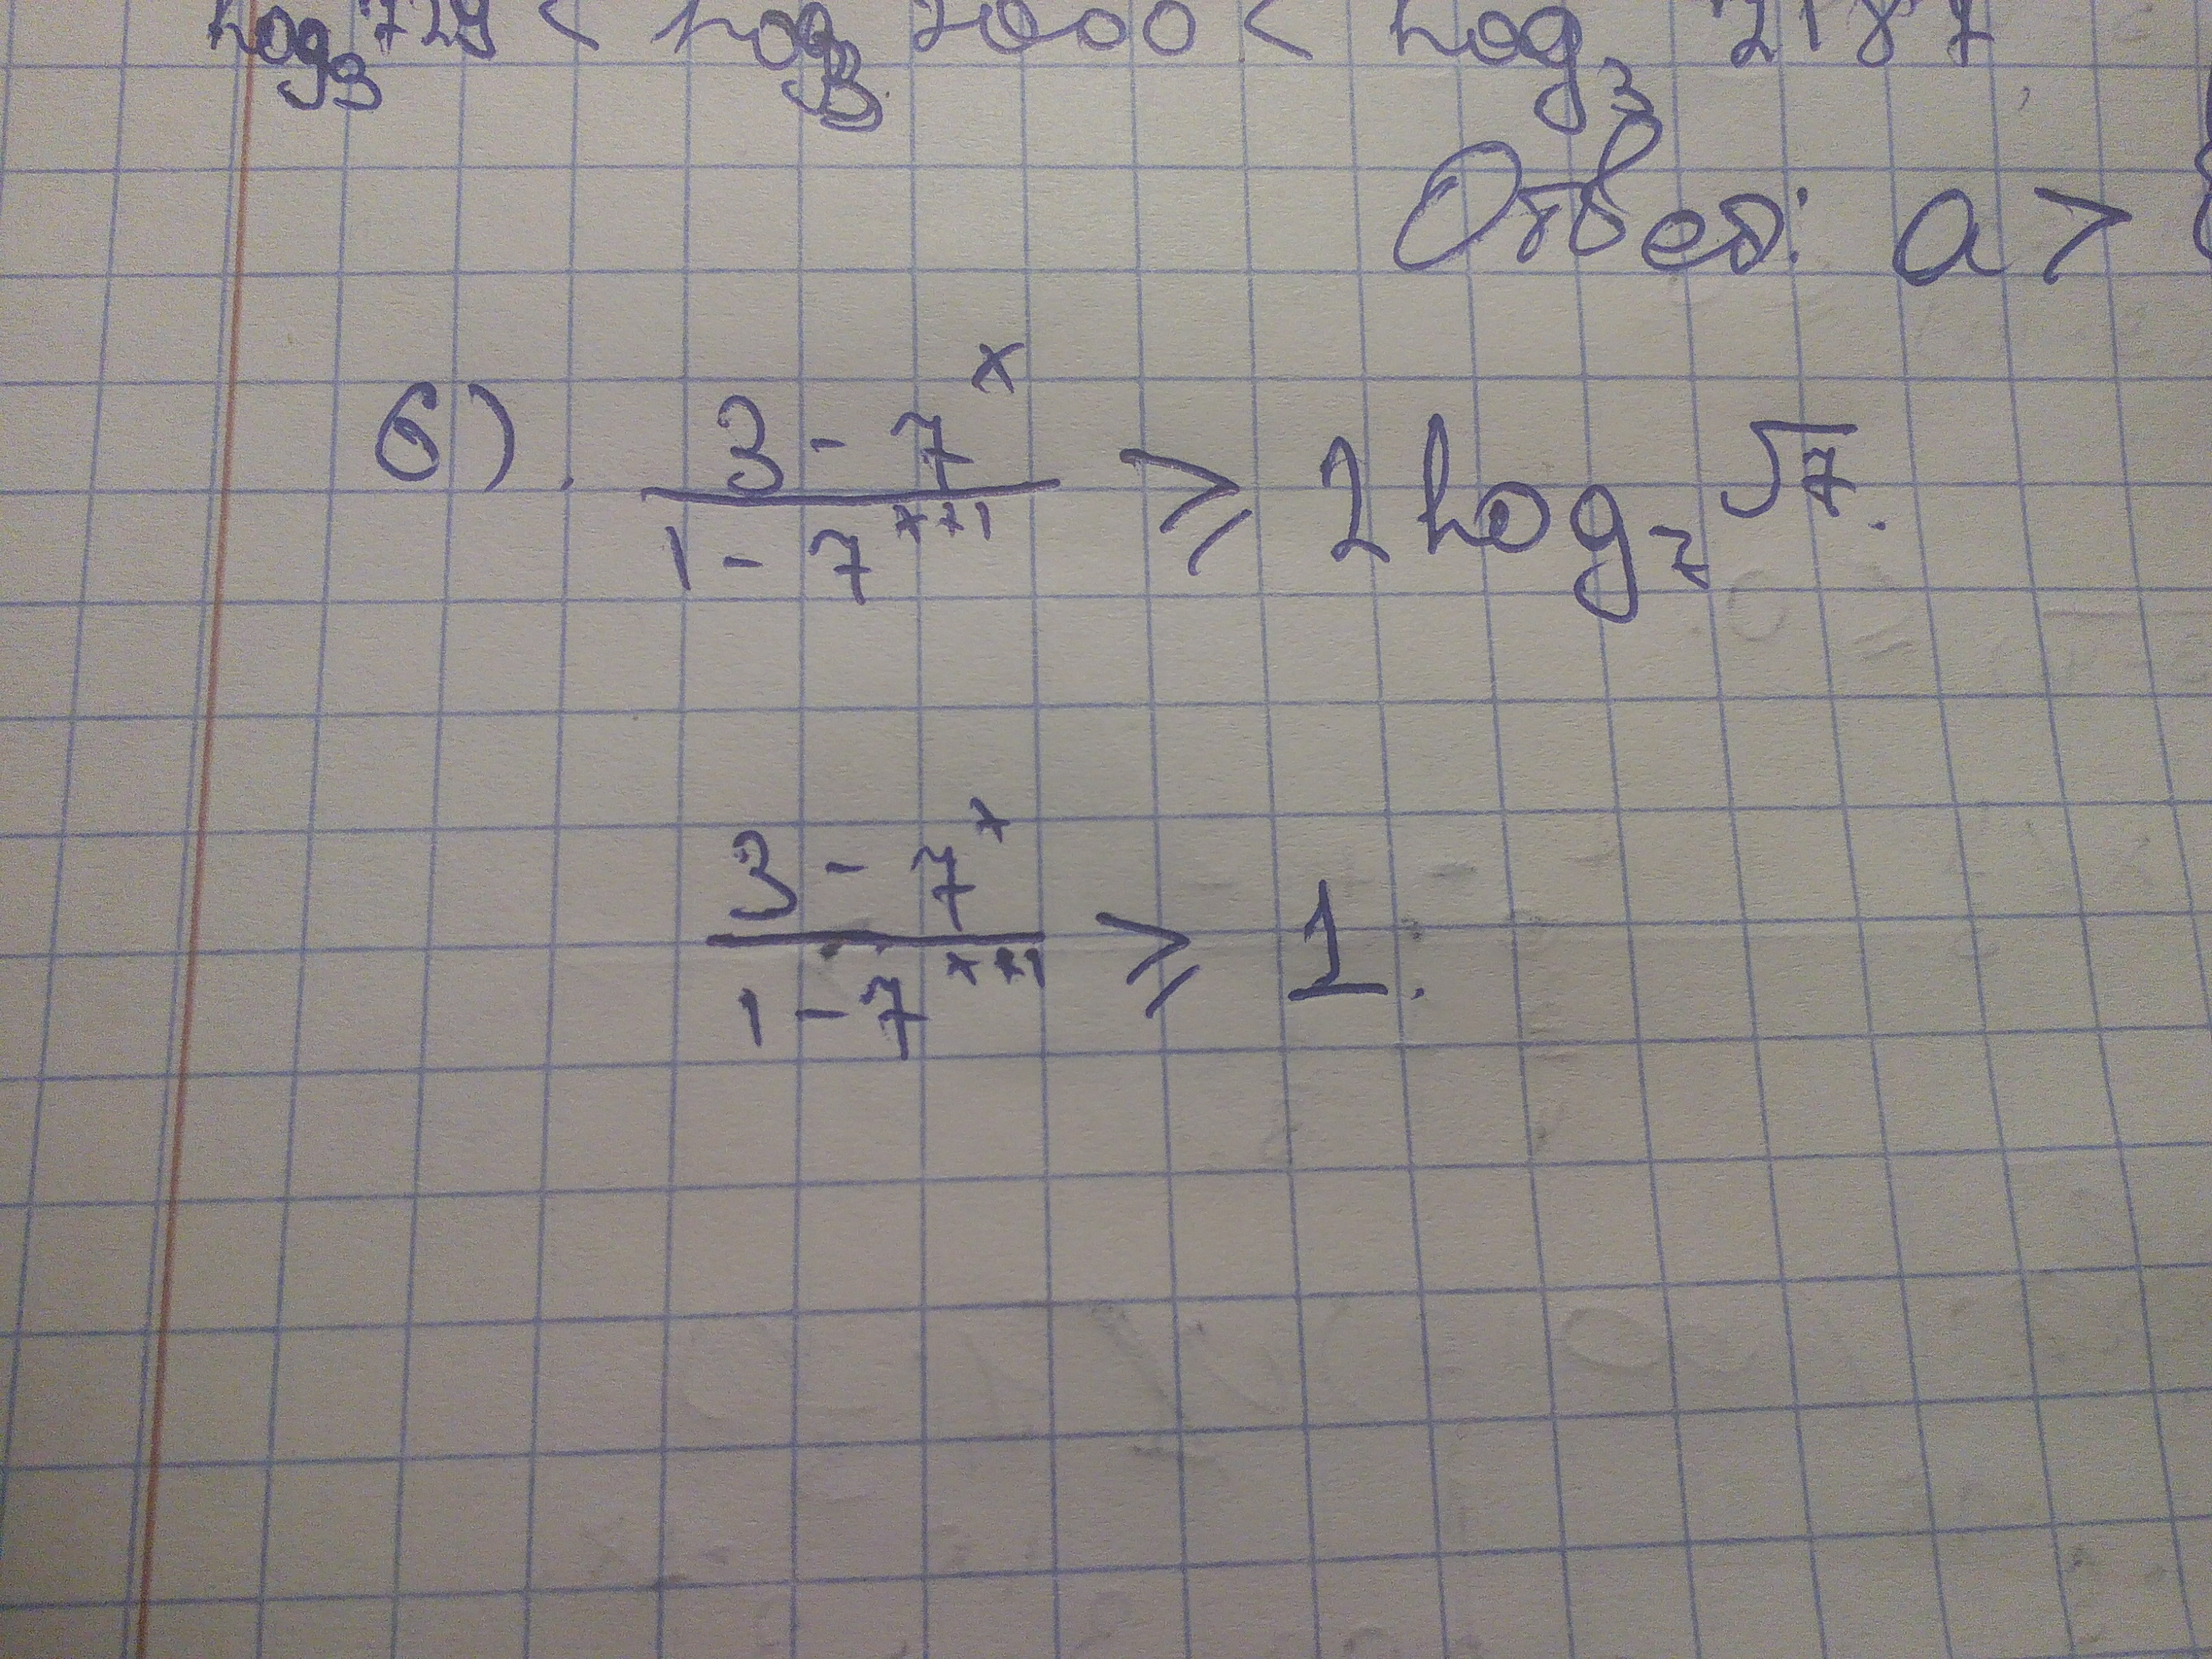 log₃ 729 < log₃ 2000 < log₃ 2187
Ответ: a >
б). (3 - 7^x)/(1 - 7^(x+1)) ⩾ 2 log₇ √7.
(3 - 7^x)/(1 - 7^(x+1)) ⩾ 1.